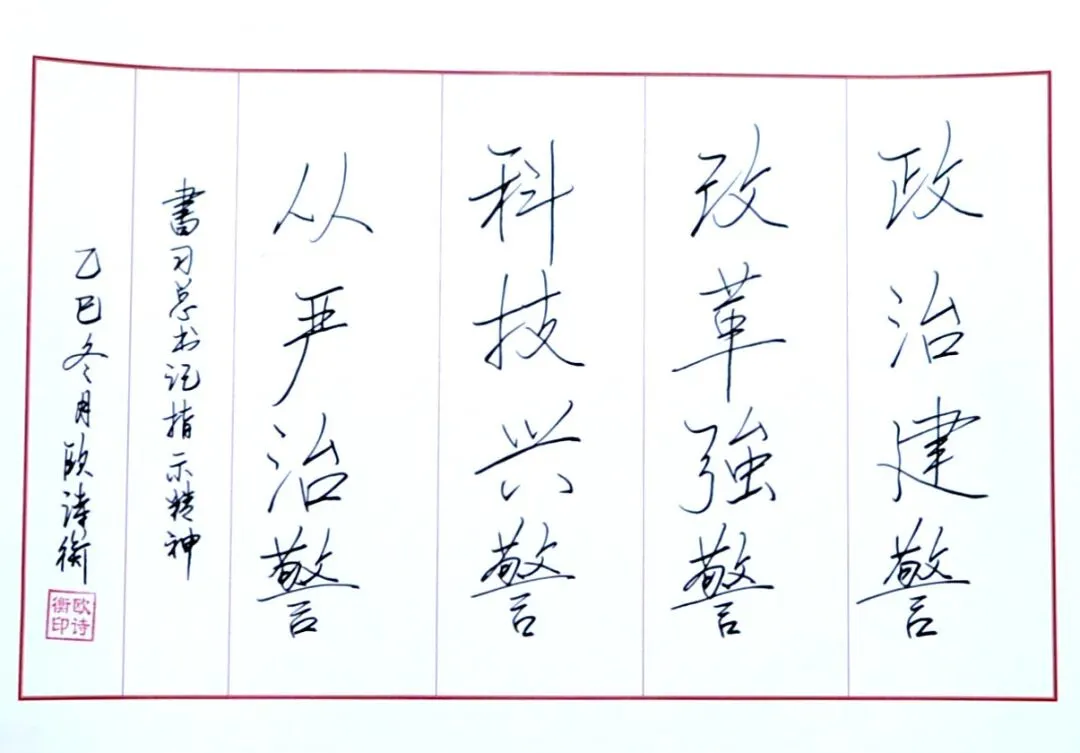 政治建警
改革強警
科技兴警
从严治警
書习总书记指示精神
乙巳冬月欧诗衡
欧诗
衡印